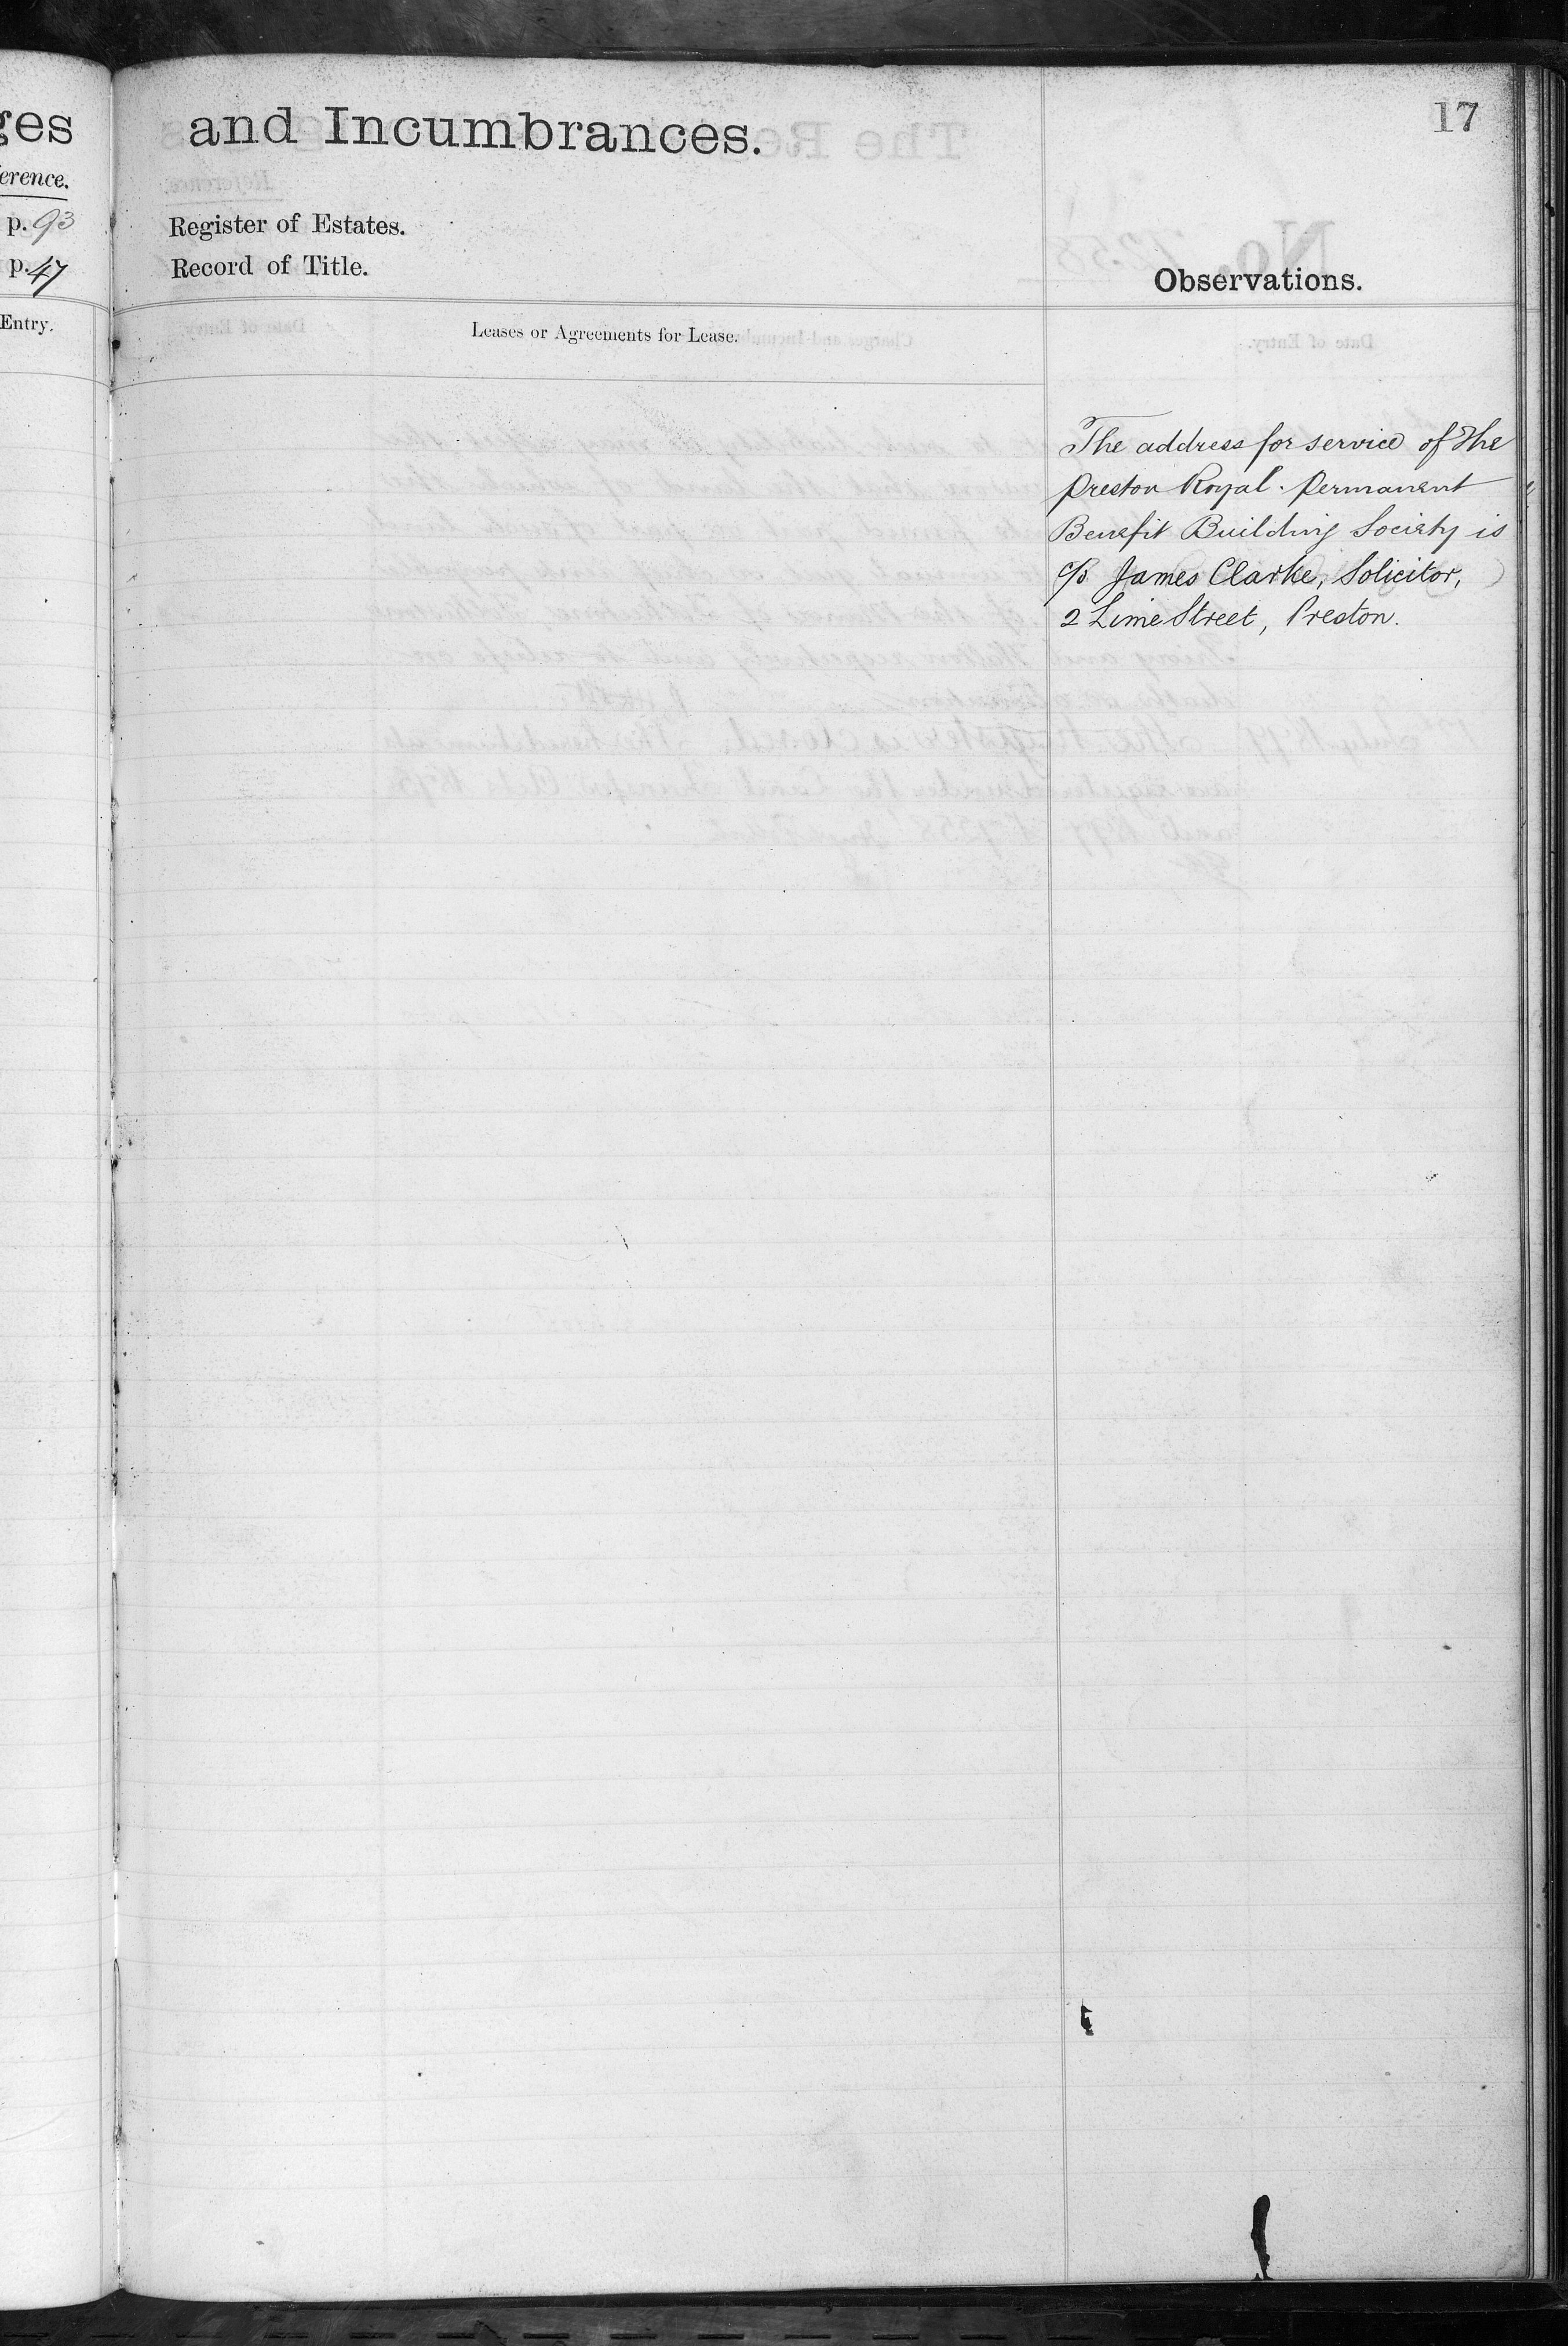 ges
and Incumbrances.
17
erence.
p. 93
Register of Estates.
p. 47
Record of Title.
Observations.
Entry.
Leases or Agreements for Lease.
The address for service of the
Preston Royal Permanent
Benefit Building Society is
c/o James Clarke, Solicitor,
2 Lime Street, Preston.